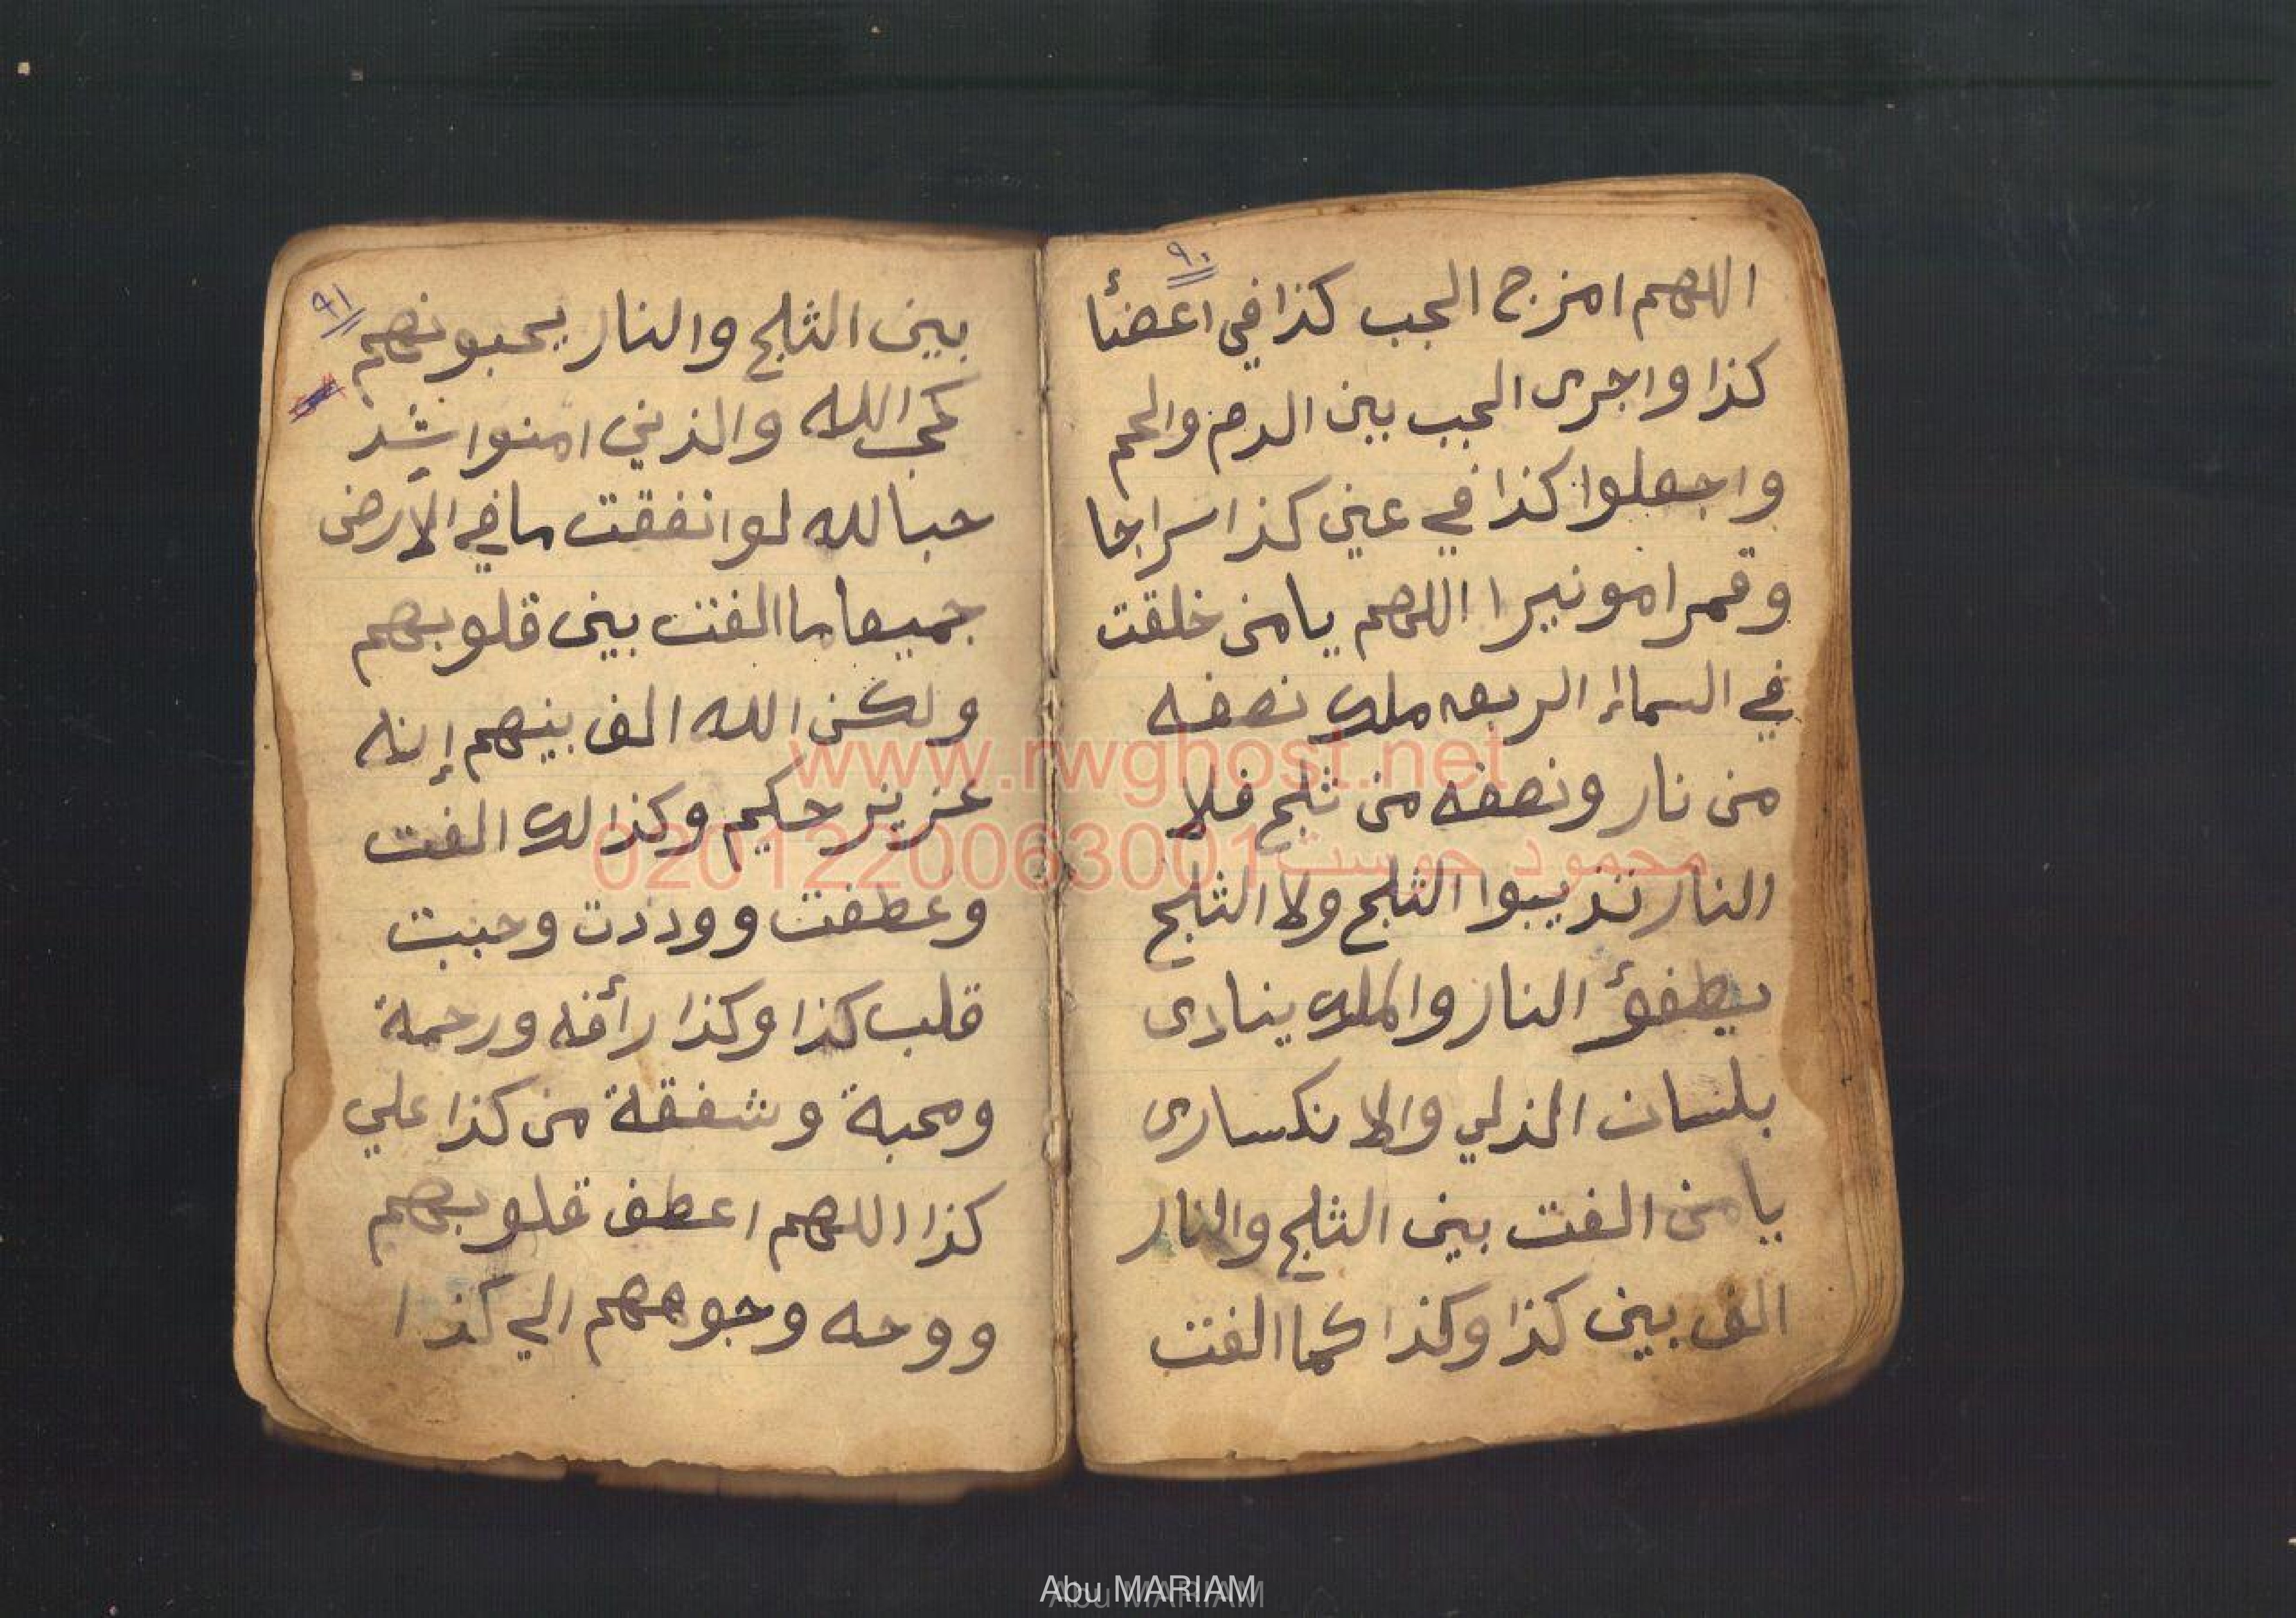 ٩٠
اللهم امزج الحب كذا في اعضئا
كذا واجرى الحب بين الدم والحم
واجعلوا كذا في عين كذا سراجا
وقمرا مونيرا اللهم يا من خلقت
في السماإ الربعه ملك نصفه
من نار ونصفه من ثلج فلا
النار تذيبوا الثلج ولا الثلج
يطفؤ النار والملك ينادى
بلسان الذلي والانكسارى
يا من الفت بين الثلج والنار
الف بين كذا وكذا كما الفت
٩١
بين الثلج والنار يحبونهم
كحب الله والذين امنوا اشد
حبا لله لو انفقت ما في الارض
جميعا ما الفت بين قلوبهم
ولكن الله الف بينهم إنه
عزيز حكيم وكذالك الفت
وعطفت ووددت وحببت
قلب كذا وكذا رأفه ورحمة
ومحبة وشفقة من كذا علي
كذا اللهم اعطف قلوبهم
ووحه وجوههم الي كذا
www.rwghost.net
محمود جوست 0201220063001
Abu MARIAM